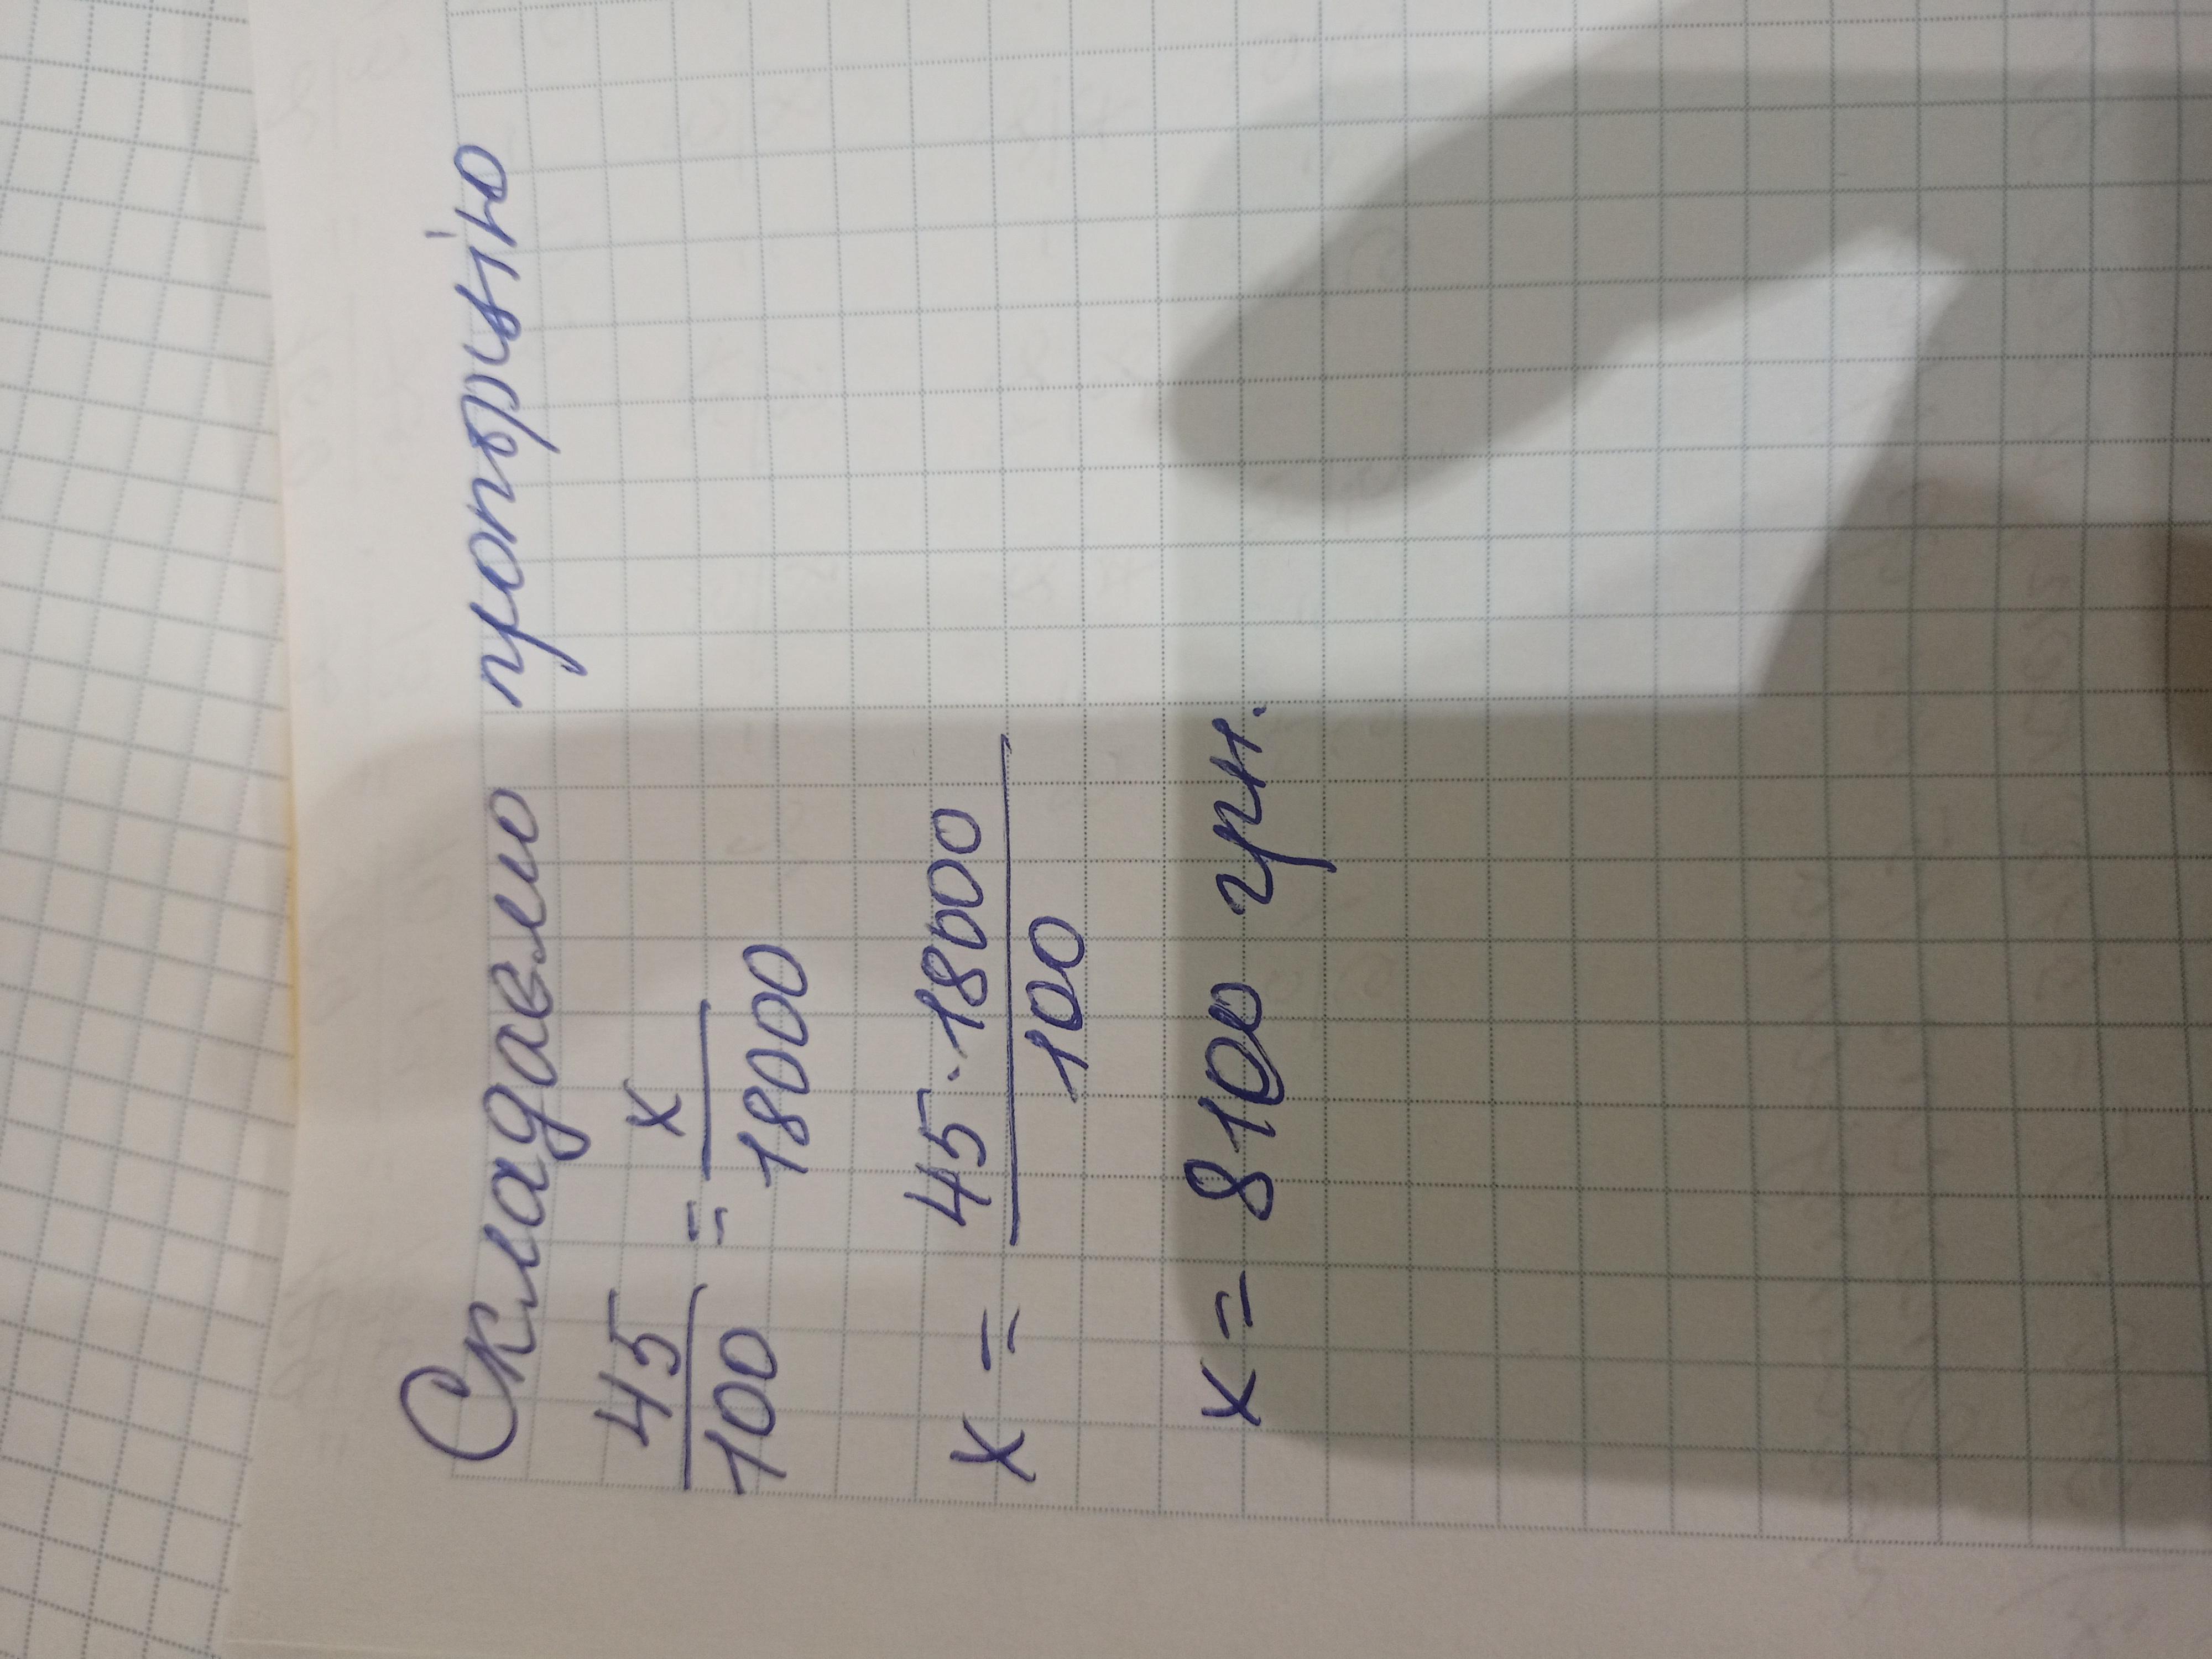 Складаємо пропорцію
45/100 = x/18000
x = 45·18000/100
x = 8100 грн.